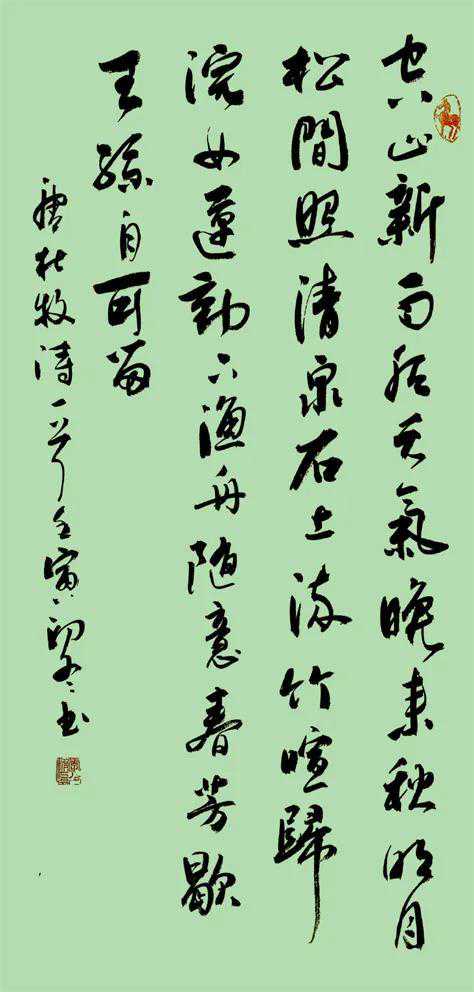 空山新雨后天氣晚来秋明月
松間照清泉石上流竹暄歸
浣女蓮動下漁舟随意春芳歇
王孫自可留
唐杜牧诗一首壬寅冬书